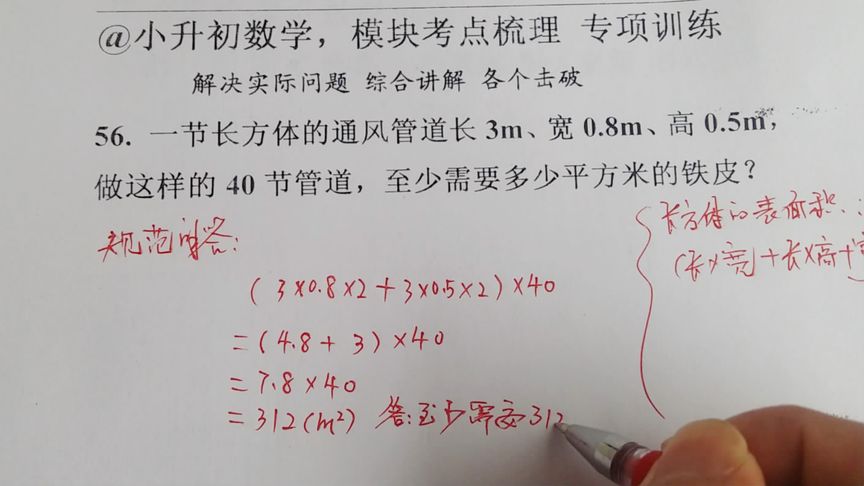 @小升初数学，模块考点梳理 专项训练
解决实际问题 综合讲解 各个击破
56. 一节长方体的通风管道长 3m、宽 0.8m、高 0.5m，
做这样的 40 节管道，至少需要多少平方米的铁皮？
规范解答：
(3×0.8×2+3×0.5×2)×40
=(4.8+3)×40
=7.8×40
=312(m²) 答:至少需要312
长方体的表面积
(长×宽+长×高+宽